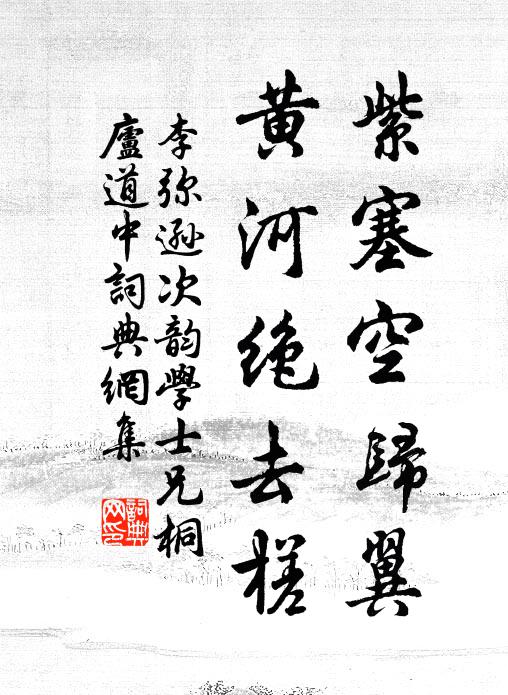 紫塞空歸翼
黃河絶去槎
李弥遜次韵學士兄桐
廬道中詞典網集
詞典网印